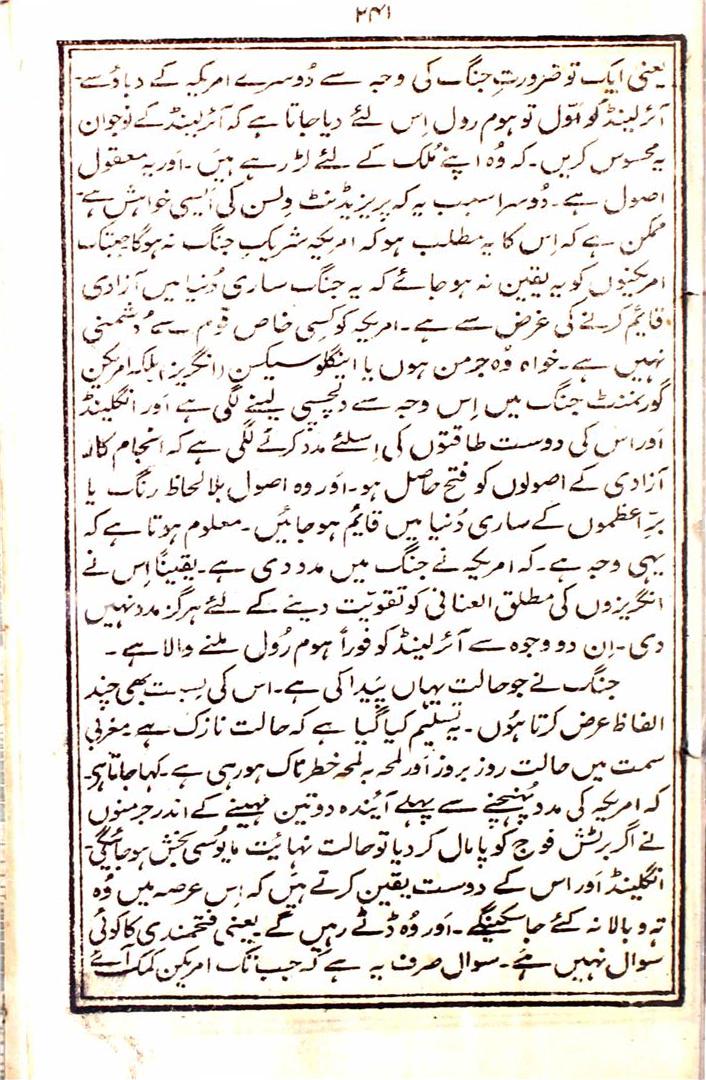 ۲۴۱
یعنی ایک تو ضرورتِ جنگ کی وجہ سے دُوسرے امریکہ کے دباؤ سے۔
آئرلینڈ کو اوّل تو ہوم رول اِس لئے دیا جاتا ہے کہ آئرلینڈ کے نوجوان
یہ محسوس کریں۔ کہ وُہ اپنے مُلک کے لئے لڑ رہے ہیں۔ اَور یہ معقول
اصول ہے۔ دُوسرا سبب یہ کہ پریزیڈنٹ وِلسن کی ایسی خواہش ہے۔
ممکن ہے کہ اِس کا یہ مطلب ہو کہ امریکہ شریکِ جنگ نہ ہوگا جبتک
امریکنوں کو یہ یقین نہ ہو جائے کہ یہ جنگ ساری دُنیا میں آزادی
قائیم کرنے کی غرض سے ہے۔ امریکہ کو کِسی خاص قوم سے دُشمنی
نہیں ہے۔ خواہ وُہ جرمن ہوں یا اینگلو سیکسن (انگریز) بلکہ امریکن
گورنمنٹ جنگ میں اِس وجہ سے دلچسپی لینے لگی ہے اَور انگلینڈ
اَور اس کی دوست طاقتوں کی اِسلئے مدد کرنے لگی ہے کہ انجام کار
آزادی کے اصولوں کو فتح حاصل ہو۔ اَور وہ اصول بلا لحاظ رنگ یا
برِّ اعظموں کے ساری دُنیا میں قائیم ہو جائیں۔ معلوم ہوتا ہے کہ
یہی وجہ ہے۔ کہ امریکہ نے جنگ میں مدد دی ہے۔ یقیناً اِس نے
انگریزوں کی مطلق العنانی کو تقویّت دینے کے لئے ہرگز مدد نہیں
دی۔ اِن دو وجوہ سے آئرلینڈ کو فوراً ہوم رُول ملنے والا ہے۔
جنگ نے جو حالت یہاں پَیدا کی ہے۔ اس کی نِسبت بھی چند
الفاظ عرض کرتا ہُوں۔ یہ تسلیم کیا گیا ہے کہ حالت نازک ہے مغربی
سمت میں حالت روز بروز اَور لمحہ بہ لمحہ خطرناک ہو رہی ہے۔ کہا جاتا ہی۔
کہ امریکہ کی مدد پُہنچنے سے پہلے آیندہ دو تین مہینے کے اندر جرمنوں
نے اگر برٹش فوج کو پامال کر دیا تو حالت نہائیت مایُوسی بخش ہو جائیگی۔
انگلینڈ اَور اس کے دوست یقین کرتے ہَیں کہ اِس عرصہ میں وُہ
تہ و بالا نہ کئے جا سکینگے۔ اَور وُہ ڈٹے رہیں گے۔ یعنی فتحمندی کا کوئی
سوال نہیں ہَے۔ سوال صرف یہ ہے کہ جب تک امریکن کمک آئے